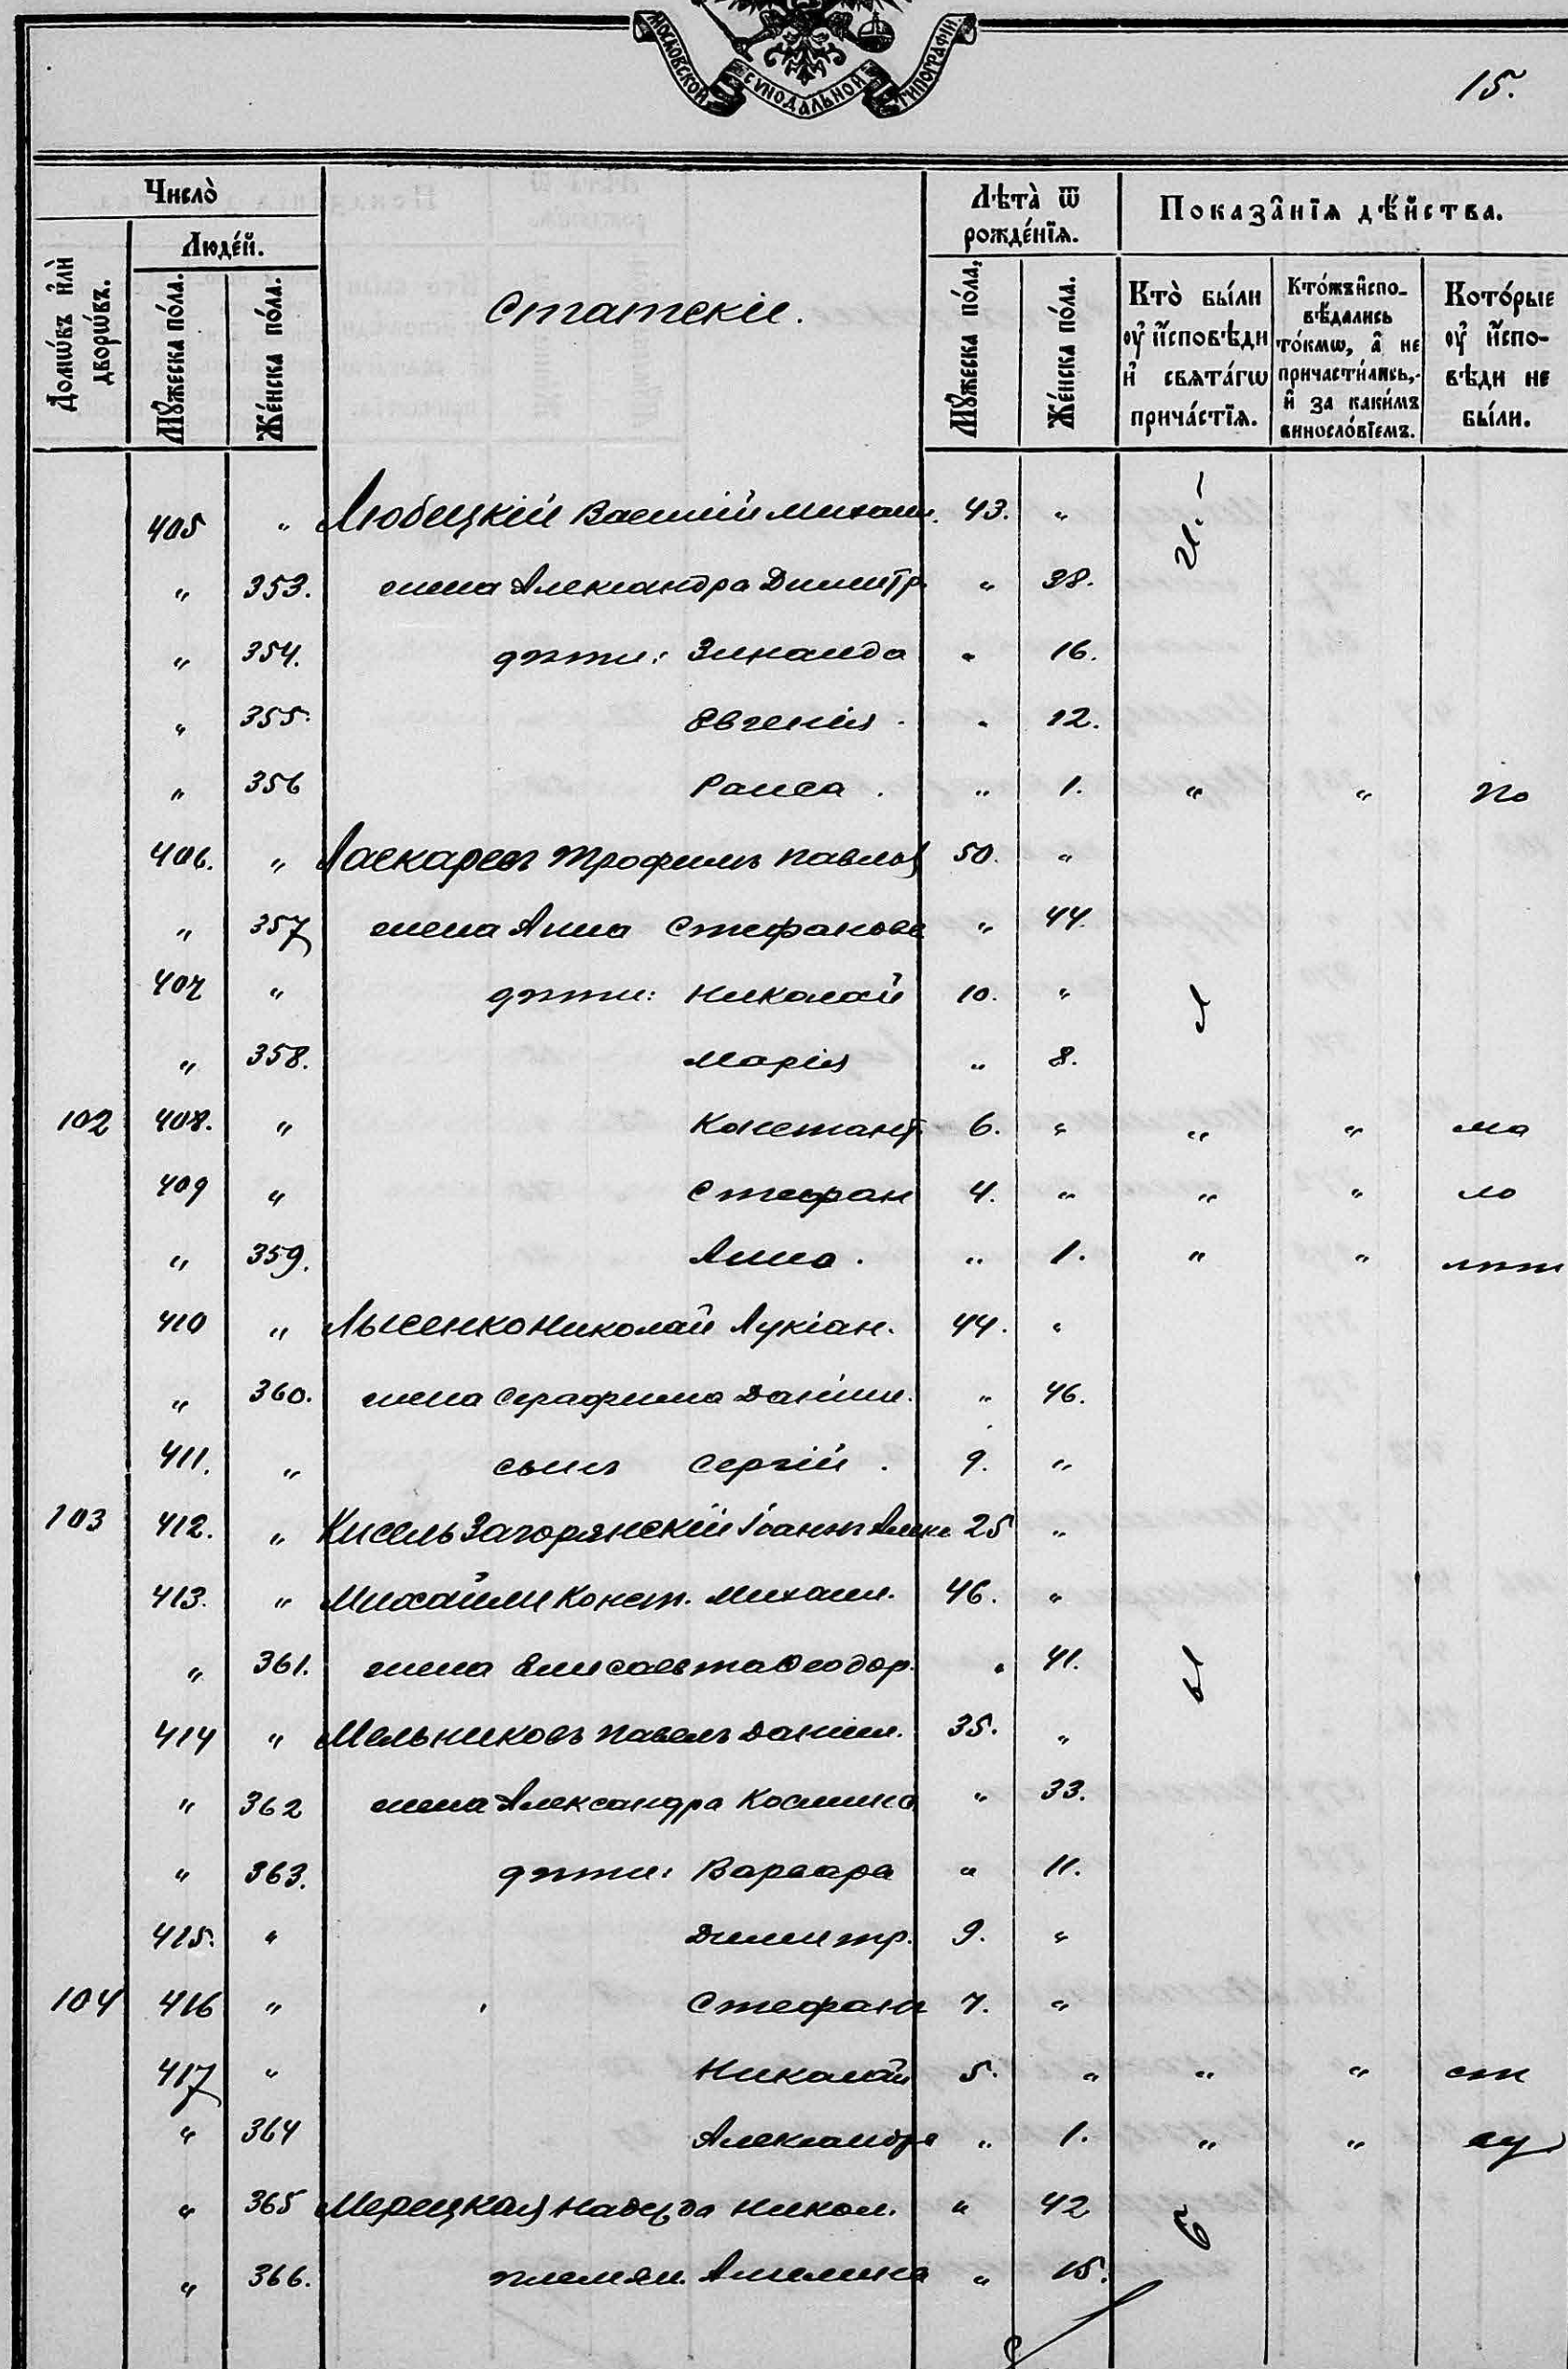 МОСКОВСКОЙ СѴНОДАЛЬНОЙ ТИПОГРАФІИ.
15.
Число̀
Люде́й.
Домѡ́въ и҆лѝ дворѡ́въ.
Мꙋ́жеска по́ла.
Же́нска по́ла.
Статскіе.
Лѣта̀ ѿ рожде́нїѧ.
Мꙋ́жеска по́ла,
Же́нска по́ла.
Показа̑нїѧ дѣ́йства.
Кто̀ бы́ли ᲂу҆ и҆́сповѣди и҆ свѧта́гѡ прича́стїѧ.
Кто́жъ и҆споВѣ́дались то́кмѡ, а҆ не причасти́лись, и҆ за каки́мъ винословїемъ.
Кото́рые ᲂу҆ и҆́сповѣди не бы́ли.
405 " Любецкій Василій Михаил. 43. "
" 353. жена Александра Димитр. " 38.
" 354. дѣти: Зинаида " 16.
" 355. Евгенія " 12.
" 356 Раиса. " 1. " " по
406. " Ласкаревъ Трофимъ Павлов 50. "
" 357 жена Анна Стефанова " 44.
407 " дѣти: Николай 10. "
" 358. Марія " 8.
102 408. " Констант. 6. " " " ма
409 " Стефан 4. " " " ло
" 359. Анна. " 1. " " лѣт
410 " Лысенко Николай Лукіан. 44. "
" 360. жена Серафима Даніил. " 46.
411. " сынъ Сергій. 9. "
103 412. " Кисель Загорянскій Іоаннъ Алекс 25 "
413. " Михайли Конст. Михаил. 46. "
" 361. жена Елисавета Ѳеодор. " 41.
414 " Мельниковъ Павелъ Даніил. 35. "
" 362 жена Александра Космина " 33.
" 363. дѣти: Варвара " 11.
415. " Димитр. 9. "
104 416 " Стефанъ 7. "
417 " Николай 5. " " " от
" 364 Александра " 1. " " су
" 365 Мерецкая Надежда Никол. " 42
" 366. племян. Ангелина " 15.